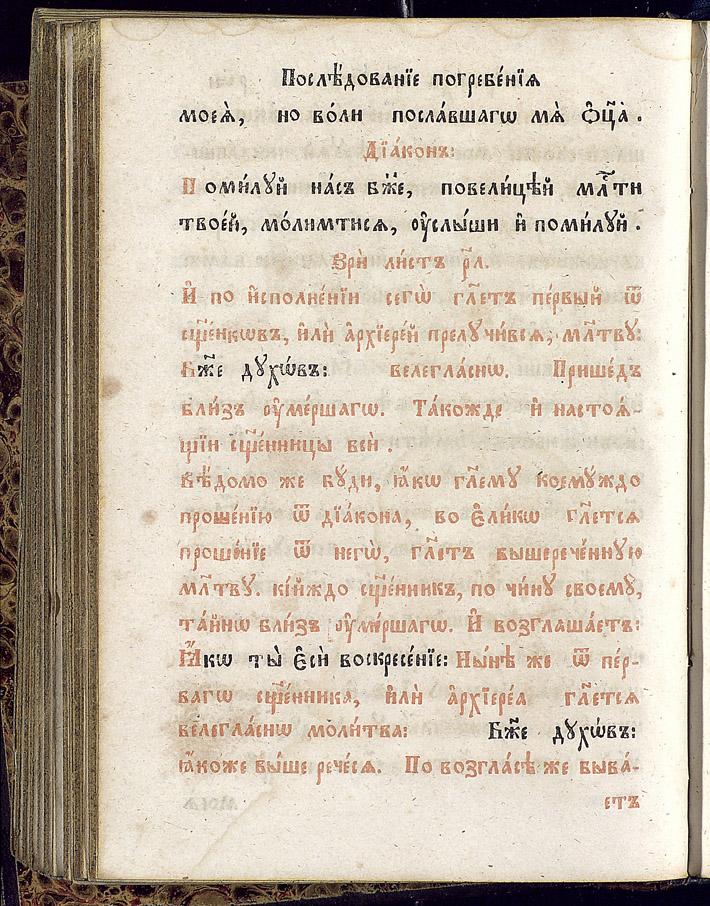 Послѣ́дованїе погребе́нїѧ
моеѧ̀, но во́ли посла́вшагѡ мѧ̀ ѻ҆ц҃а̀.
Дїа́конъ:
Поми́лꙋй на́съ бж҃е, повели́цѣй млⷭ҇ти
твое́й, мо́лимтисѧ, ᲂу҆слы́ши и҆ поми́лꙋй.
Зрѝ ли́стъ рл҃.
И҆ по и҆сполне́нїи сегѡ̀ гл҃етъ пе́рвый ѿ
сщ҃е́нкѡвъ, и҆лѝ а҆рхїере́й прелꙋчи́всѧ, мл҃твꙋ:
Бж҃е дꙋхѡ́въ: велегла́снѡ. Прише́дъ
бли́зъ ᲂу҆ме́ршагѡ. Та́кожде и҆ настоѧ́-
щїи сщ҃е́нницы всѝ.
Вѣ́домо же бꙋ́ди, ꙗ҆́кѡ гл҃емꙋ коемꙋ́ждо
проше́нїю ѿ дїа́кона, во є҆ли́кѡ гл҃етсѧ
проше́нїе ѿ негѡ̀, гл҃етъ вышерече́ннꙋю
мл҃твꙋ. кі́йждо сщ҃е́нникъ, по чи́нꙋ своемꙋ̀,
та́йнѡ бли́зъ ᲂу҆ме́ршагѡ. И҆ возглаша́етъ:
Ꙗ҆́кѡ ты̀ є҆сѝ воскресе́нїе: Ны́нѣ же ѿ пе́р-
вагѡ сщ҃е́нника, и҆лѝ а҆рхїере́а гл҃етсѧ
велегла́снѡ моли́тва: Бж҃е дꙋхѡ́въ:
ꙗ҆́коже вы́ше рече́сѧ. По возгла́сѣ же быва́-
етъ